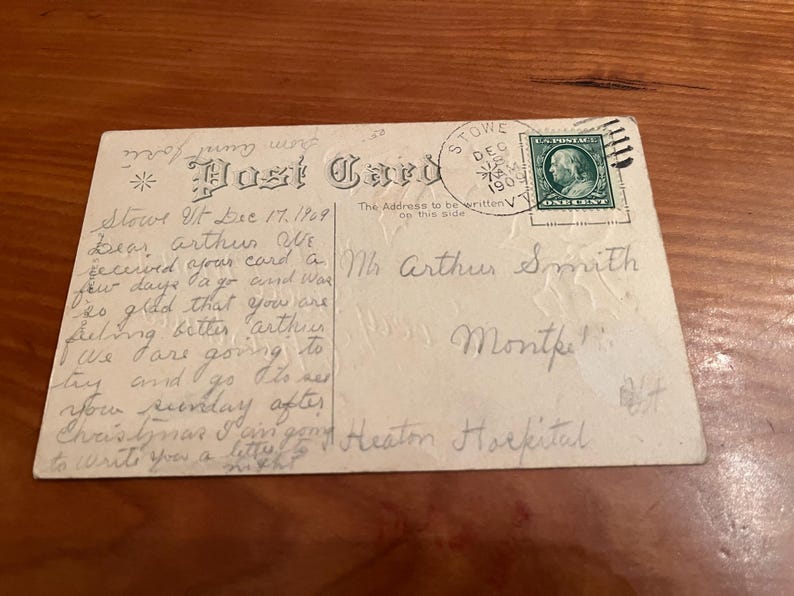 from aunt
Post Card
The Address to be written
on this side
STOWE
DEC
18
1909
VT
U.S. POSTAGE
ONE CENT
Stowe Vt Dec 17, 1909
Dear Arthur We
received your card a
few days ago and was
so glad that you are
feeling better Arthur
We are going to
try and go to see
you sunday after
Christmas I am going
to write you a letter to
night
Mr Arthur Smith
Montpe
Vt
Heaton Hospital